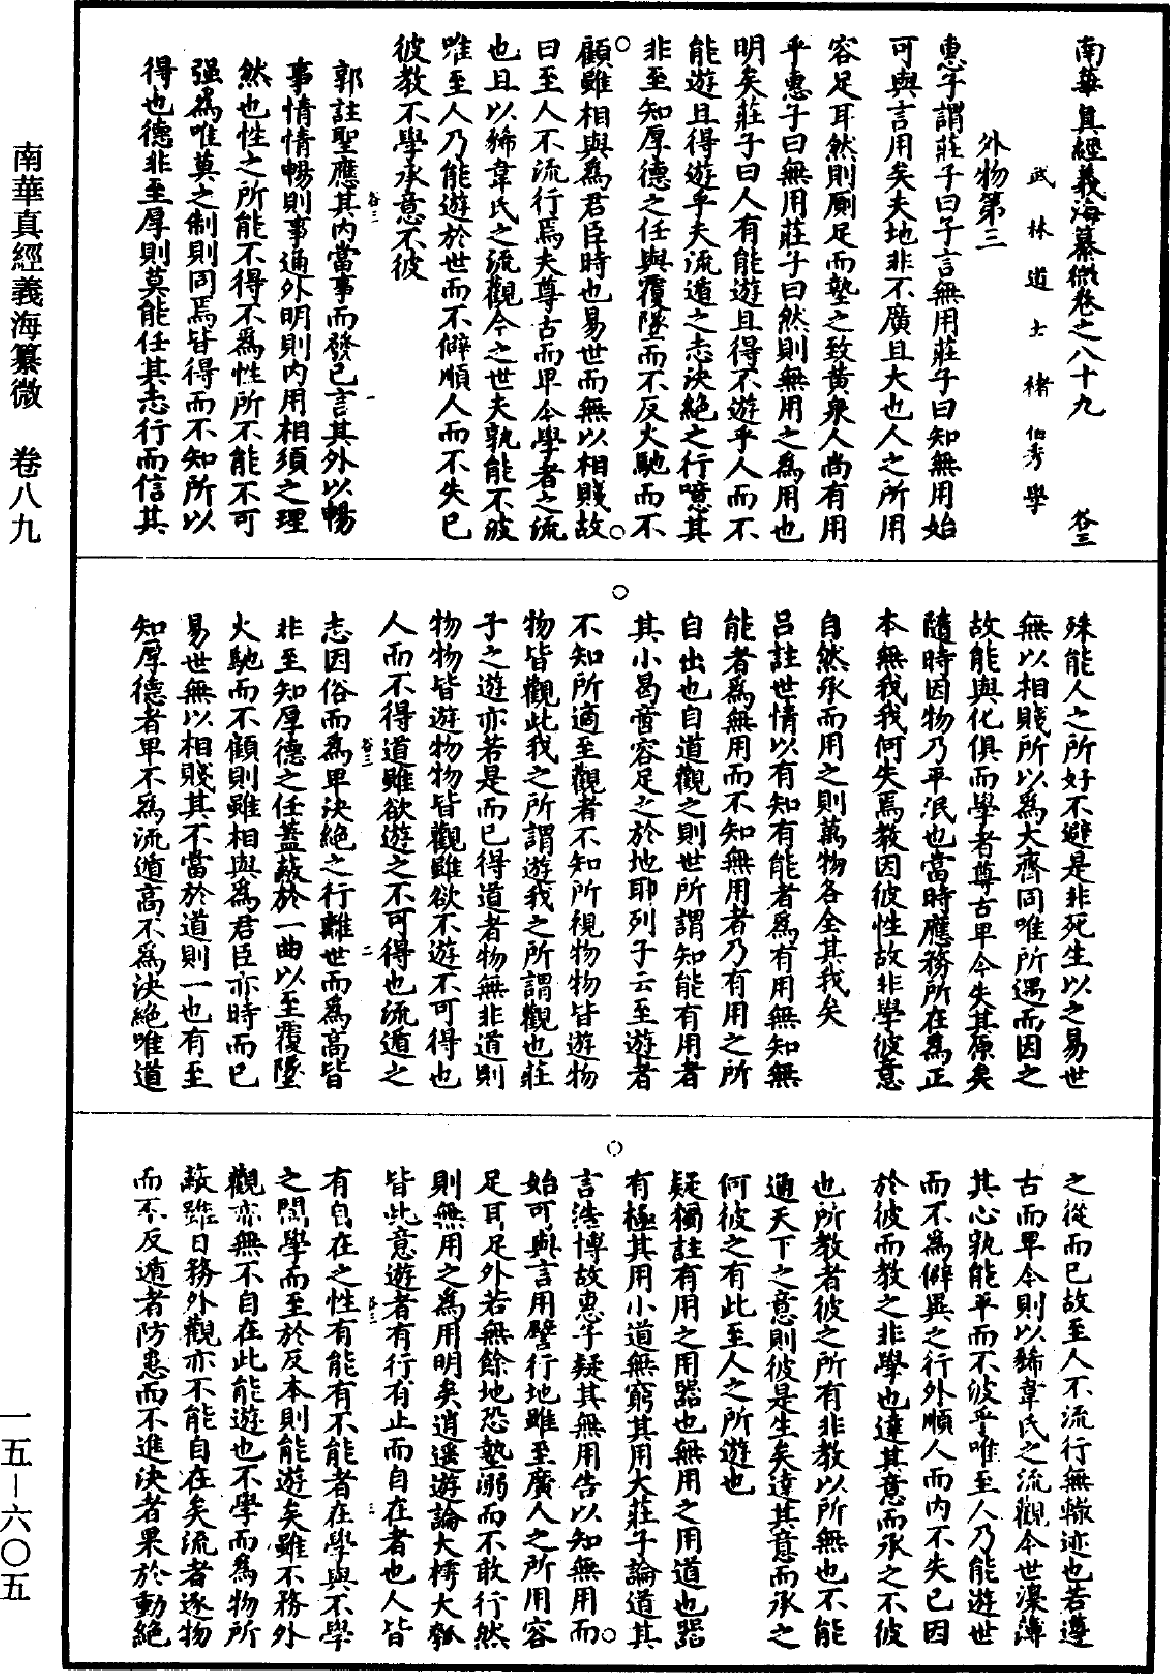 南華真經義海纂微卷之八十九　谷三
武林道士褚伯秀學
外物第三
惠子謂莊子曰子言無用莊子曰知無用始
可與言用矣夫地非不廣且大也人之所用
容足耳然則廁足而墊之致黃泉人尚有用
乎惠子曰無用莊子曰然則無用之為用也
明矣莊子曰人有能遊且得不遊乎人而不
能遊且得遊乎夫流遁之志決絕之行噫其
非至知厚德之任與覆墜而不反火馳而不
顧雖相與為君臣時也易世而無以相賤故
曰至人不流行焉夫尊古而卑今學者之流
也且以狶韋氏之流觀今之世夫孰能不波
唯至人乃能遊於世而不僻順人而不失已
彼教不學承意不彼
郭註聖應其內當事而發已言其外以暢
事情情暢則事通外明則內用相須之理
然也性之所能不得不為性所不能不可
强為唯莫之制則同焉皆得而不知所以
得也德非至厚則莫能任其志行而信其
谷三　一
殊能人之所好不避是非死生以之易世
無以相賤所以為大齊同唯所遇而因之
故能與化俱而學者尊古卑今失其原矣
隨時因物乃平泯也當時應務所在為正
本無我我何失焉教因彼性故非學彼意
自然承而用之則萬物各全其我矣
呂註世情以有知有能者為有用無知無
能者為無用而不知無用者乃有用之所
自出也自道觀之則世所謂知能有用者
其小曷啻容足之於地耶列子云至遊者
不知所適至觀者不知所視物物皆遊物
物皆觀此我之所謂遊我之所謂觀也莊
子之遊亦若是而已得道者物無非道則
物物皆遊物物皆觀雖欲不遊不可得也
人而不得道雖欲遊之不可得也流遁之
谷三　二
志因俗而為卑決絕之行離世而為高皆
非至知厚德之任蓋蔽於一曲以至覆墜
火馳而不顧則雖相與為君臣亦時而已
易世無以相賤其不當於道則一也有至
知厚德者卑不為流遁高不為決絕唯道
之從而已故至人不流行無轍迹也若遵
古而卑今則以狶韋氏之流觀今世澆薄
其心孰能平而不波乎唯至人乃能遊世
而不為僻異之行外順人而內不失已因
於彼而教之非學也達其意而承之不彼
也所教者彼之所有非教以所無也不能
通天下之意則彼是生矣達其意而承之
何彼之有此至人之所遊也
疑獨註有用之用器也無用之用道也器
有極其用小道無窮其用大莊子論道其
言浩博故惠子疑其無用告以知無用而
始可與言用譬行地雖至廣人之所用容
足耳足外若無餘地恐墊溺而不敢行然
則無用之為用明矣逍遥遊論大樗大瓠
皆此意遊者有行有止而自在者也人皆
谷三　三
有自在之性有能有不能者在學與不學
之間學而至於反本則能遊矣雖不務外
觀亦無不自在此能遊也不學而為物所
蔽雖日務外觀亦不能自在矣流者逐物
而不反遁者防患而不進決者果於動絕
南華真經義海纂微　卷八九
一五—六〇五